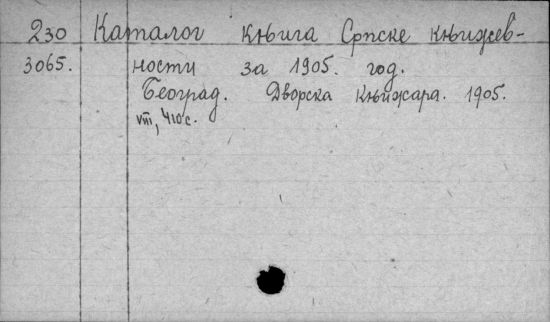 230 Каталог књига Српске књижев-
3065. ности за 1905. год.
Београд. Дворска књижара. 1905.
VIII, 410 с.